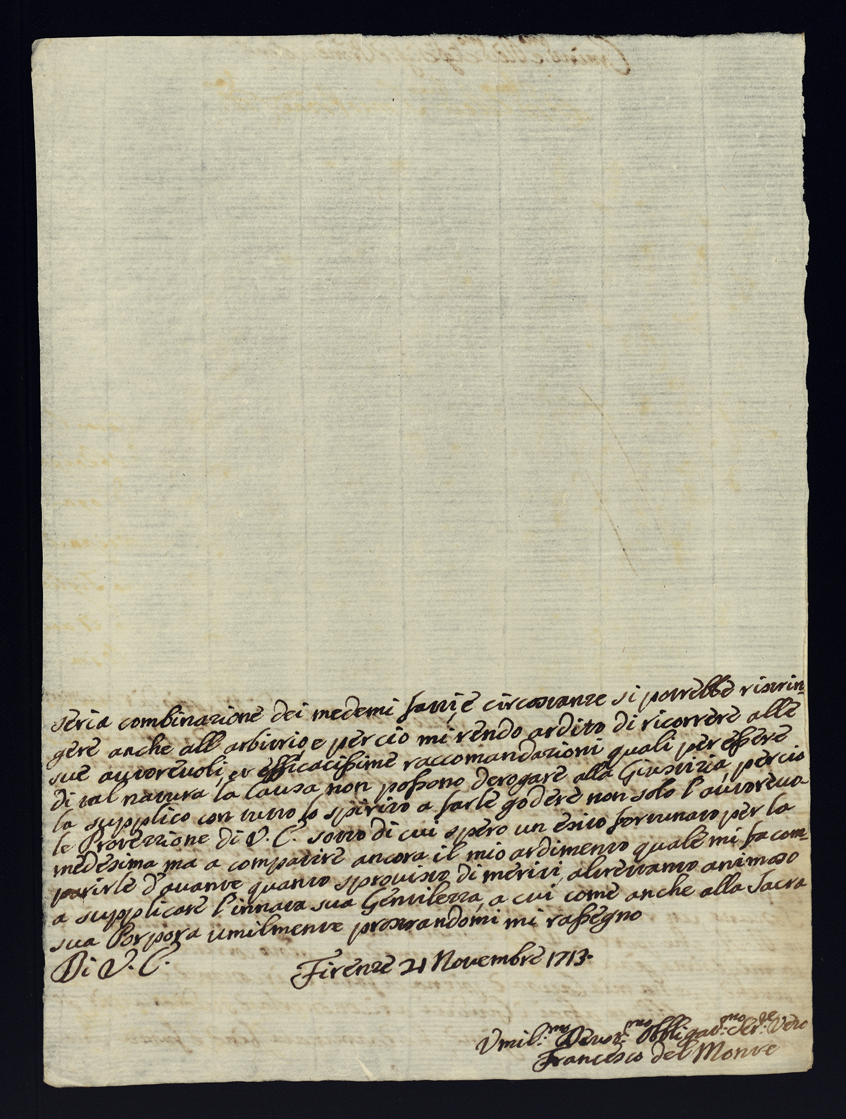 seria combinazione dei medemi fatti, e circostanze si potrebbe ristrin=
gere anche all'arbitrio, e perciò mi rendo ardito di ricorrere alle
sue autorevoli, et efficacissime raccomandazioni quali per essere
di tal natura la Causa non possono derogare alla Giustizia, perciò
la supplico con tutto lo spirito a farle godere non solo l'autorevo=
le Protezzione di V. E. sotto di cui spero un esito fortunato per la
medesima ma a compatire ancora il mio ardimento quale mi fa com=
parirle d'avante quanto sprovisto di meriti, altrettanto animoso
a supplicare l'innata sua Gentilezza, a cui come anche alla Sacra
sua Porpora umilmente prostrandomi mi rassegno
Di V. E. Firenze 21 Novembre 1713.
Umil.mo Devot.mo Obbligat.mo Ser.re Vero
Francesco del Monte